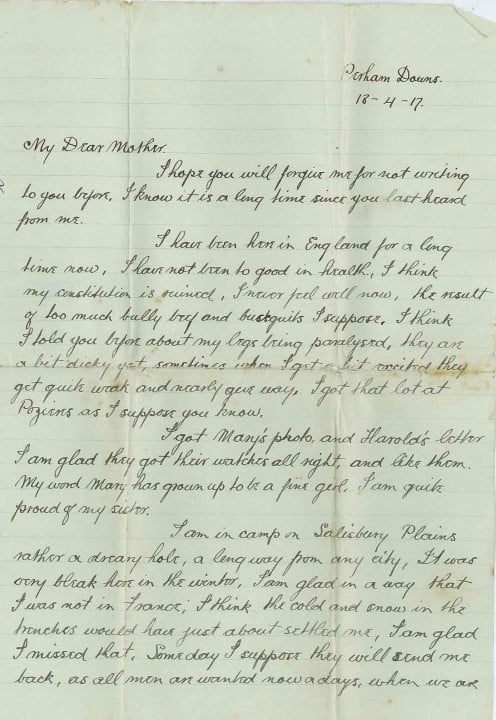 Perham Downs.
18-4-17.
My Dear Mother.
I hope you will forgive me for not writing
to you before. I know it is a long time since you last heard
from me.
I have been here in England for a long
time now, I have not been to good in health, I think
my constitution is ruined, I never feel well now, the result
of too much bully beef and busquits I suppose. I think
I told you before about my legs being paralysed, they are
a bit dicky yet, sometimes when I get a bit excited they
get quite weak and nearly give way, I got that lot at
Poziers as I suppose you know.
I got Mary's photo, and Harold's letter
I am glad they got their watches all right, and like them.
My word Mary has grown up to be a fine girl, I am quite
proud of my sister.
I am in camp on Salisbury Plains
rather a dreary hole, a long way from any city, It was
very bleak here in the winter, I am glad in a way that
I was not in France, I think the cold and snow in the
trenches would have just about settled me, I am glad
I missed that, Someday I suppose they will send me
back, as all men are wanted nowadays, when we are